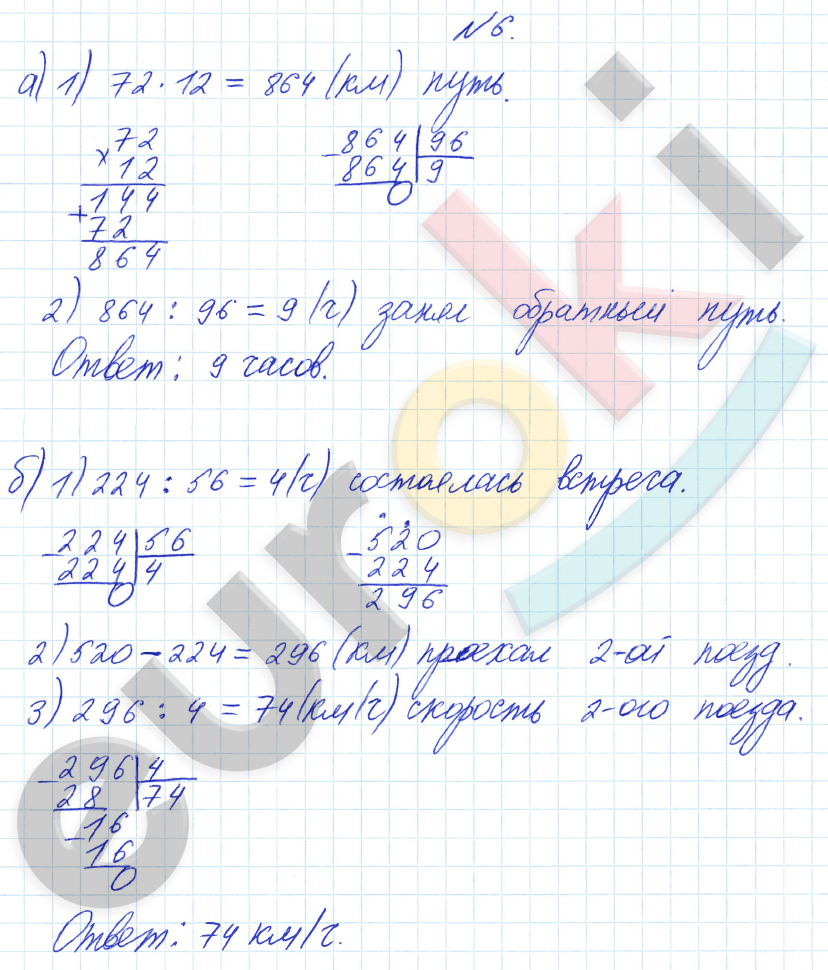 №6.
а) 1) 72·12 = 864 (км) путь.
×72
12
+144
72
864
-864|96
864|9
0
2) 864 : 96 = 9 (ч) занял обратный путь.
Ответ: 9 часов.
б) 1) 224 : 56 = 4 (ч) состоялась встреча.
-224|56
224|4
0
-520
224
296
2) 520 - 224 = 296 (км) проехал 2-ой поезд.
3) 296 : 4 = 74 (км/ч) скорость 2-ого поезда.
-296|4
28|74
-16
16
0
Ответ: 74 км/ч.
euroki